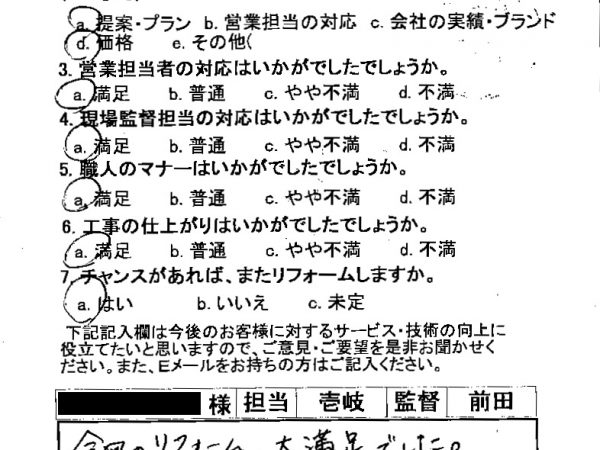 a. 提案・プラン b. 営業担当の対応 c. 会社の実績・ブランド
d. 価格 e. その他(
3. 営業担当者の対応はいかがでしたでしょうか。
a. 満足 b. 普通 c. やや不満 d. 不満
4. 現場監督担当の対応はいかがでしたでしょうか。
a. 満足 b. 普通 c. やや不満 d. 不満
5. 職人のマナーはいかがでしたでしょうか。
a. 満足 b. 普通 c. やや不満 d. 不満
6. 工事の仕上がりはいかがでしたでしょうか。
a. 満足 b. 普通 c. やや不満 d. 不満
7. チャンスがあれば、またリフォームしますか。
a. はい b. いいえ c. 未定
下記記入欄は今後のお客様に対するサービス・技術の向上に
役立てたいと思いますので、ご意見・ご要望を是非お聞かせく
ださい。また、Eメールをお持ちの方はご記入ください。
様 担当 壱岐 監督 前田
今回のリフォーム 大満足でした。